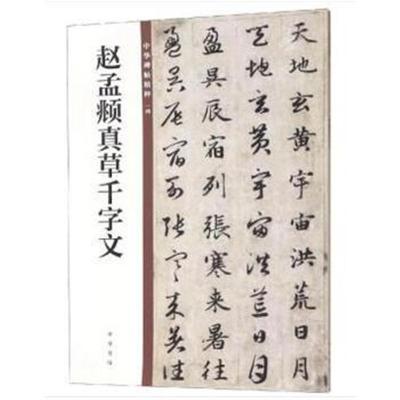 天地玄黄宇宙洪荒日月
天地玄黄宇宙洪荒日月
盈昃辰宿列張寒来暑往
盈昃辰宿列張寒来暑往
中華碑帖精粹
赵孟𫖯真草千字文
中華書局